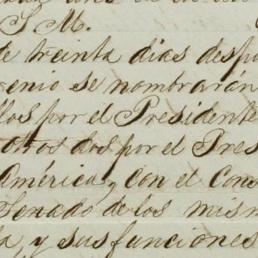 S. M.
de treinta dias desp
enio se nombrarán
llos por el Presidente
otros dos por el Pres
América, con el Cons
Senado de los mism
a, y sus funciones